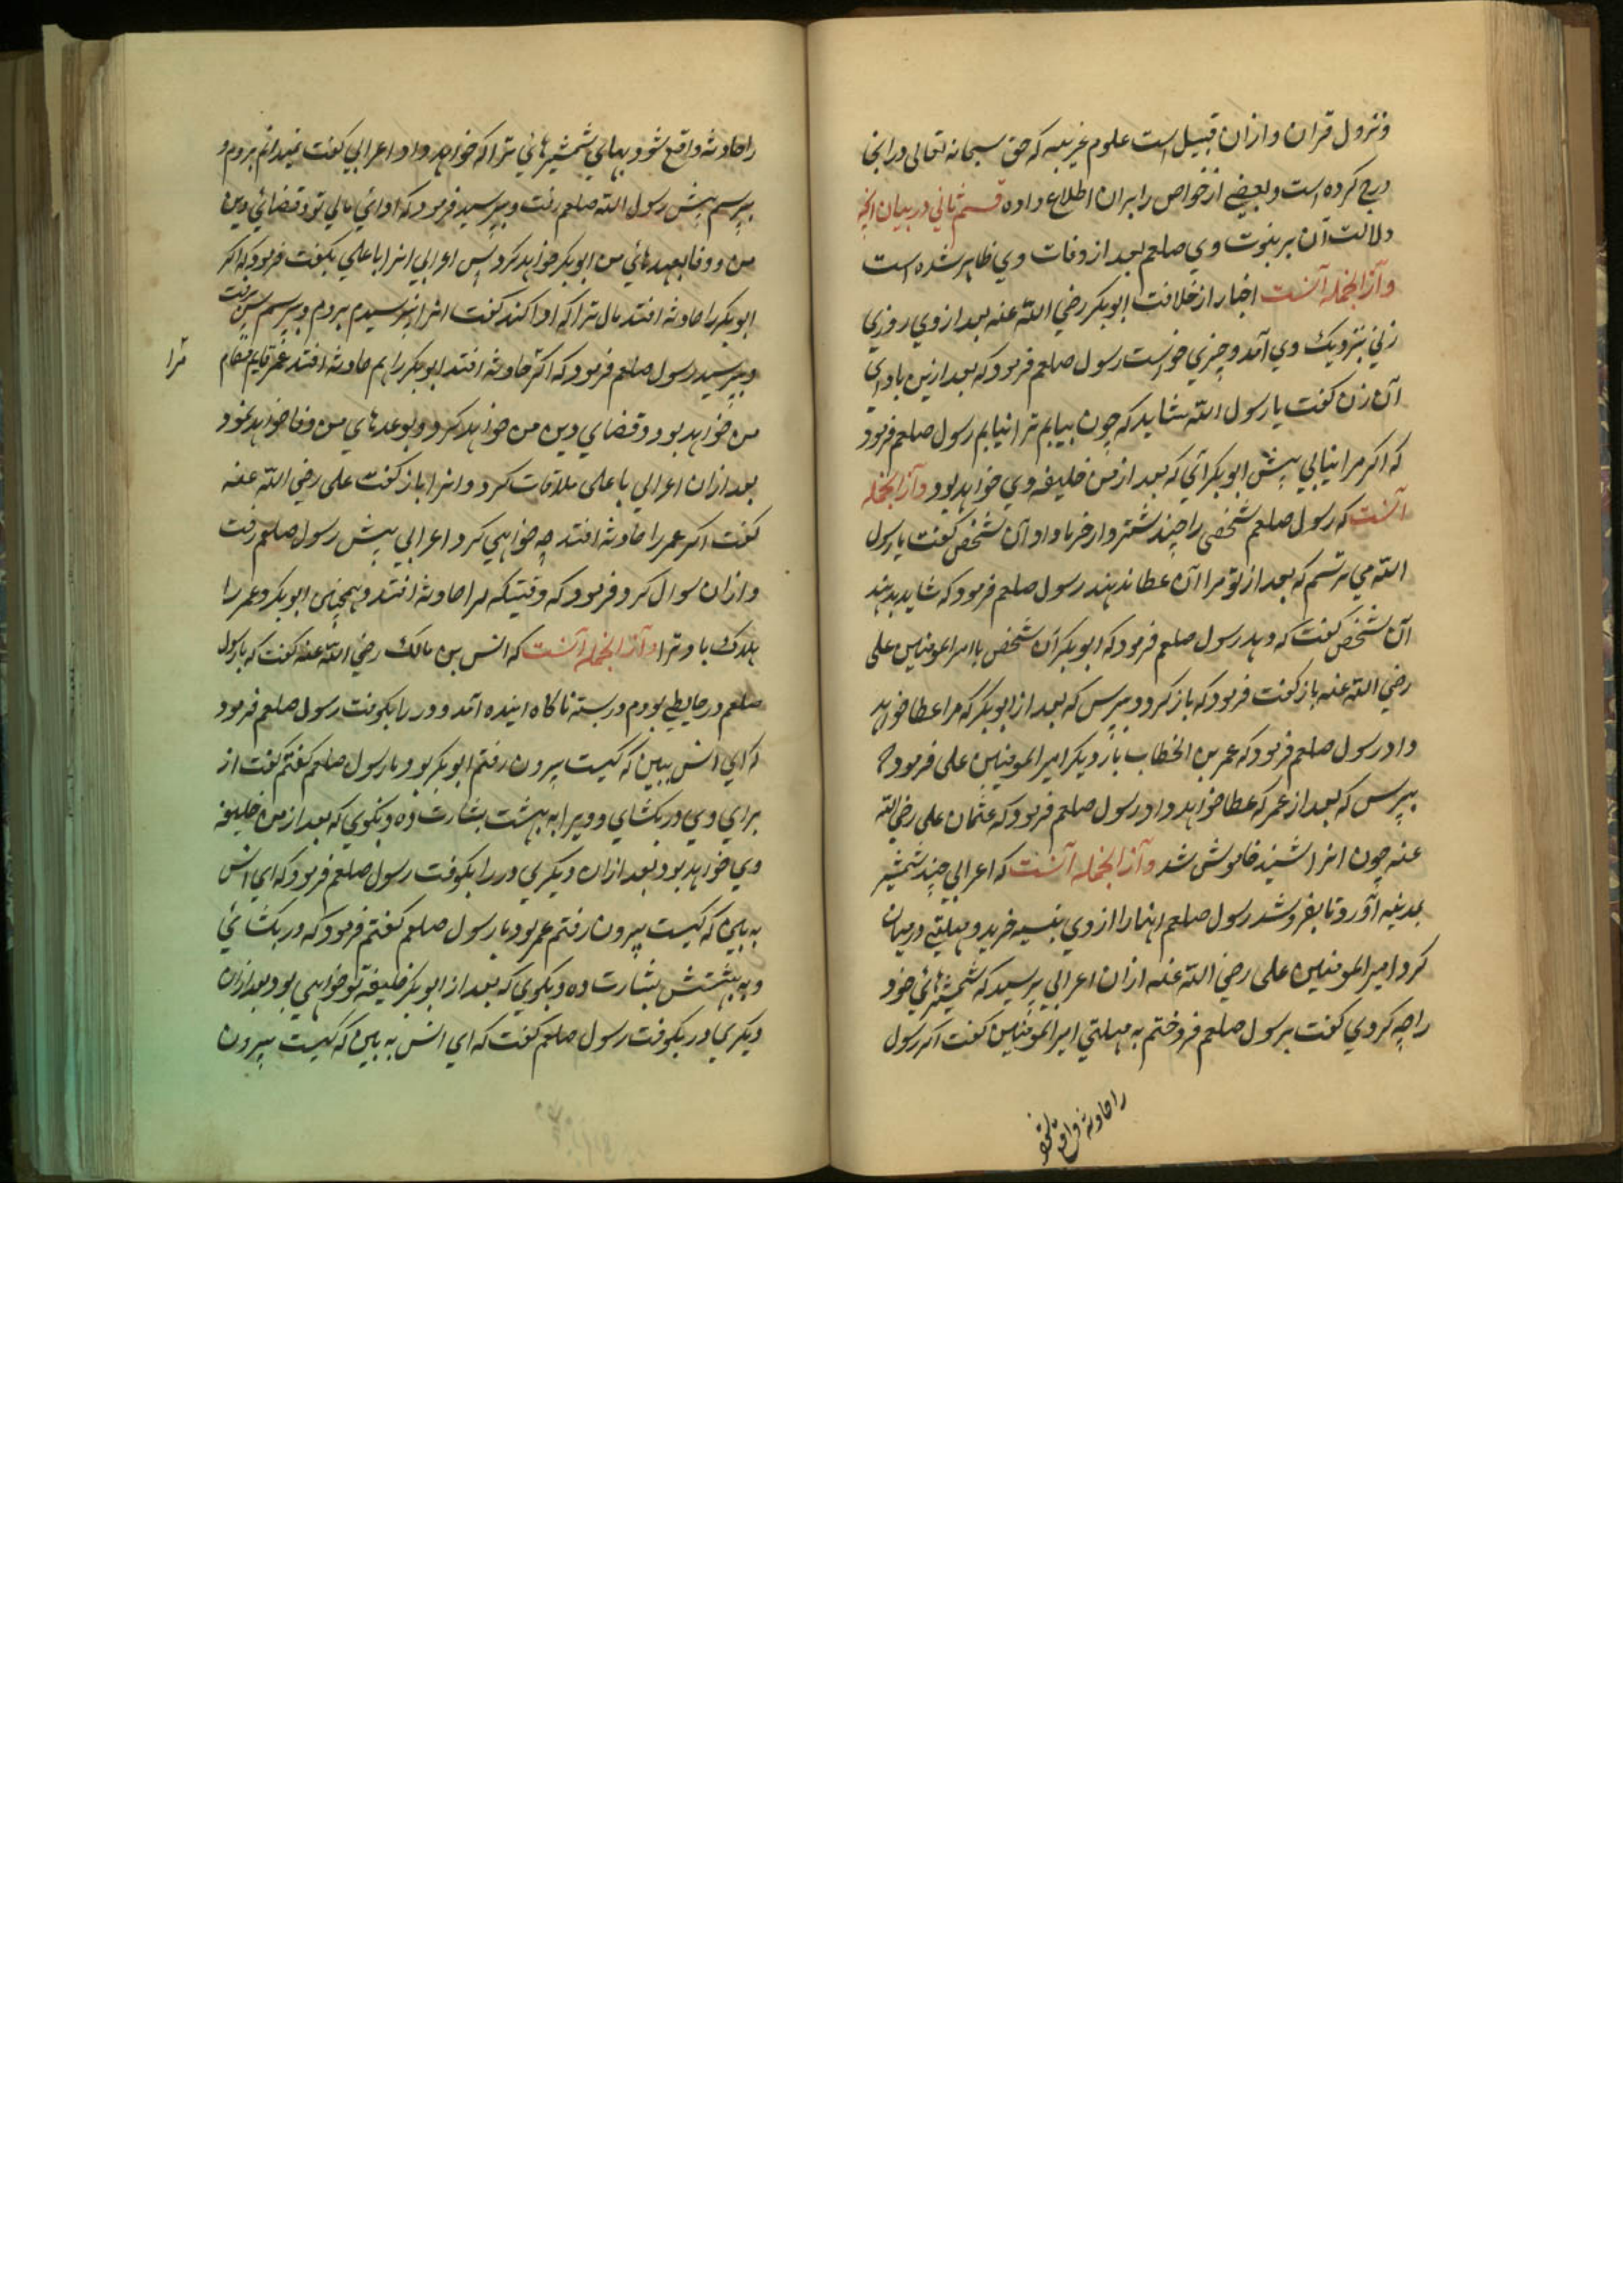 و نزول قران و ازان قبیل است علوم غریبه که حق سبحانه تعالی درانجا
درج کرده است و بعضی از خواص را بران اطلاع داده قسم ثانی در بیان انچه
دلالت آن بر نبوت وی صلعم بعد از وفات وی ظاهر شده است
و آز الجمله آنست اخبار از خلافت ابوبکر رضی الله عنه بعد از وی روزی
زنی بنزدیک وی آمد و چیزی خواست رسول صلعم فرمود که بعد ازین باز ای
آن زن کفت یا رسول الله شاید که چون بیایم ترا نیابم رسول صلعم فرمود
که اکر مرا نیابی پیش ابوبکر آئی که بعد از من خلیفه وی خواهد بود و آز الجمله
آنست که رسول صلعم شخصی را چند شتر وار خرما داد آن شخص کفت یا رسول
الله می ترسم که بعد از تو مرا آن عطا ندهند رسول صلعم فرمود که شاید بدهند
آن شخص کفت که دهد رسول صلعم فرمود که ابوبکر آن شخص با امیرالمومنین علی
رضی الله عنه باز کفت فرمود که باز کرد و بپرس که بعد از ابوبکر که مرا عطا خواهد
داد رسول صلعم فرمود که عمر بن الخطاب باز دیکر امیرالمومنین علی فرمود که
بپرس که بعد از عمر که عطا خواهد داد رسول صلعم فرمود که عثمان علی رضی الله
عنه چون انرا شنید خاموش شد و آز الجمله آنست که اعرابی چند شمشیر
بمدینه آورد تا بفروشد رسول صلعم انها را از وی بنسیه خرید و مهلتی درمیان
کرد امیرالمومنین علی رضی الله عنه ازان اعرابی پرسید که شمشیرهائی خود
را چه کردی کفت برسول صلعم فروختم به مهلتی امیرالمومنین کفت اکر رسول
را حادثه واقع شود
را حادثه واقع شود بهائی شمشیرهائی ترا که خواهد داد اعرابی کفت نمیدانم بروم و
بپرسم پیش رسول الله صلعم رفت و بپرسید فرمود که ادائی مالی تو و قضائی دین
من و وفا بعهدهائی من ابوبکر خواهد کرد پس اعرابی انرا با علی بکفت فرمود که اکر
ابوبکر را حادثه افتد مال ترا که ادا کند کفت انرا نپرسیدم بروم و بپرسم پس برفت
و بپرسید رسول صلعم فرمود که اکر حادثه افتد ابوبکر را هم حادثه افتد عمر قایم مقام
ترا
من خواهد بود و قضای دین من خواهد کرد و بوعدهای من وفا خواهد نمود
بعد ازان اعرابی با علی ملاقات کرد و انرا باز کفت علی رضی الله عنه
کفت اکر عمر را حادثه افتد چه خواهی کرد اعرابی پیش رسول صلعم رفت
و ازان سوال کرد فرمود که وقتیکه مرا حادثه افتد و همچنین ابوبکر و عمر را
هلاک باد ترا و آز الجمله آنست که انس بن مالک رضی الله عنه کفت که با رسول
صلعم در حایطی بودم در بسته ناکاه اینده آمد و در را بکوفت رسول صلعم فرمود
که ای انس ببین که کیست بیرون رفتم ابوبکر بود با رسول صلعم کفتم کفت از
برای وی در بکشای و ویرا به بهشت بشارت ده و بکوی که بعد از من خلیفه
وی خواهد بود بعد ازان دیکری در را بکوفت رسول صلعم فرمود که ای انس
به بین که کیست بیرون رفتم عمر بود با رسول صلعم کفتم فرمود که در بکشائی
و به بهشتش بشارت ده و بکوی که بعد از ابوبکر خلیفه تو خواهی بود بعد ازان
دیکری در بکوفت رسول صلعم کفت که ای انس به بین که کیست بیرون